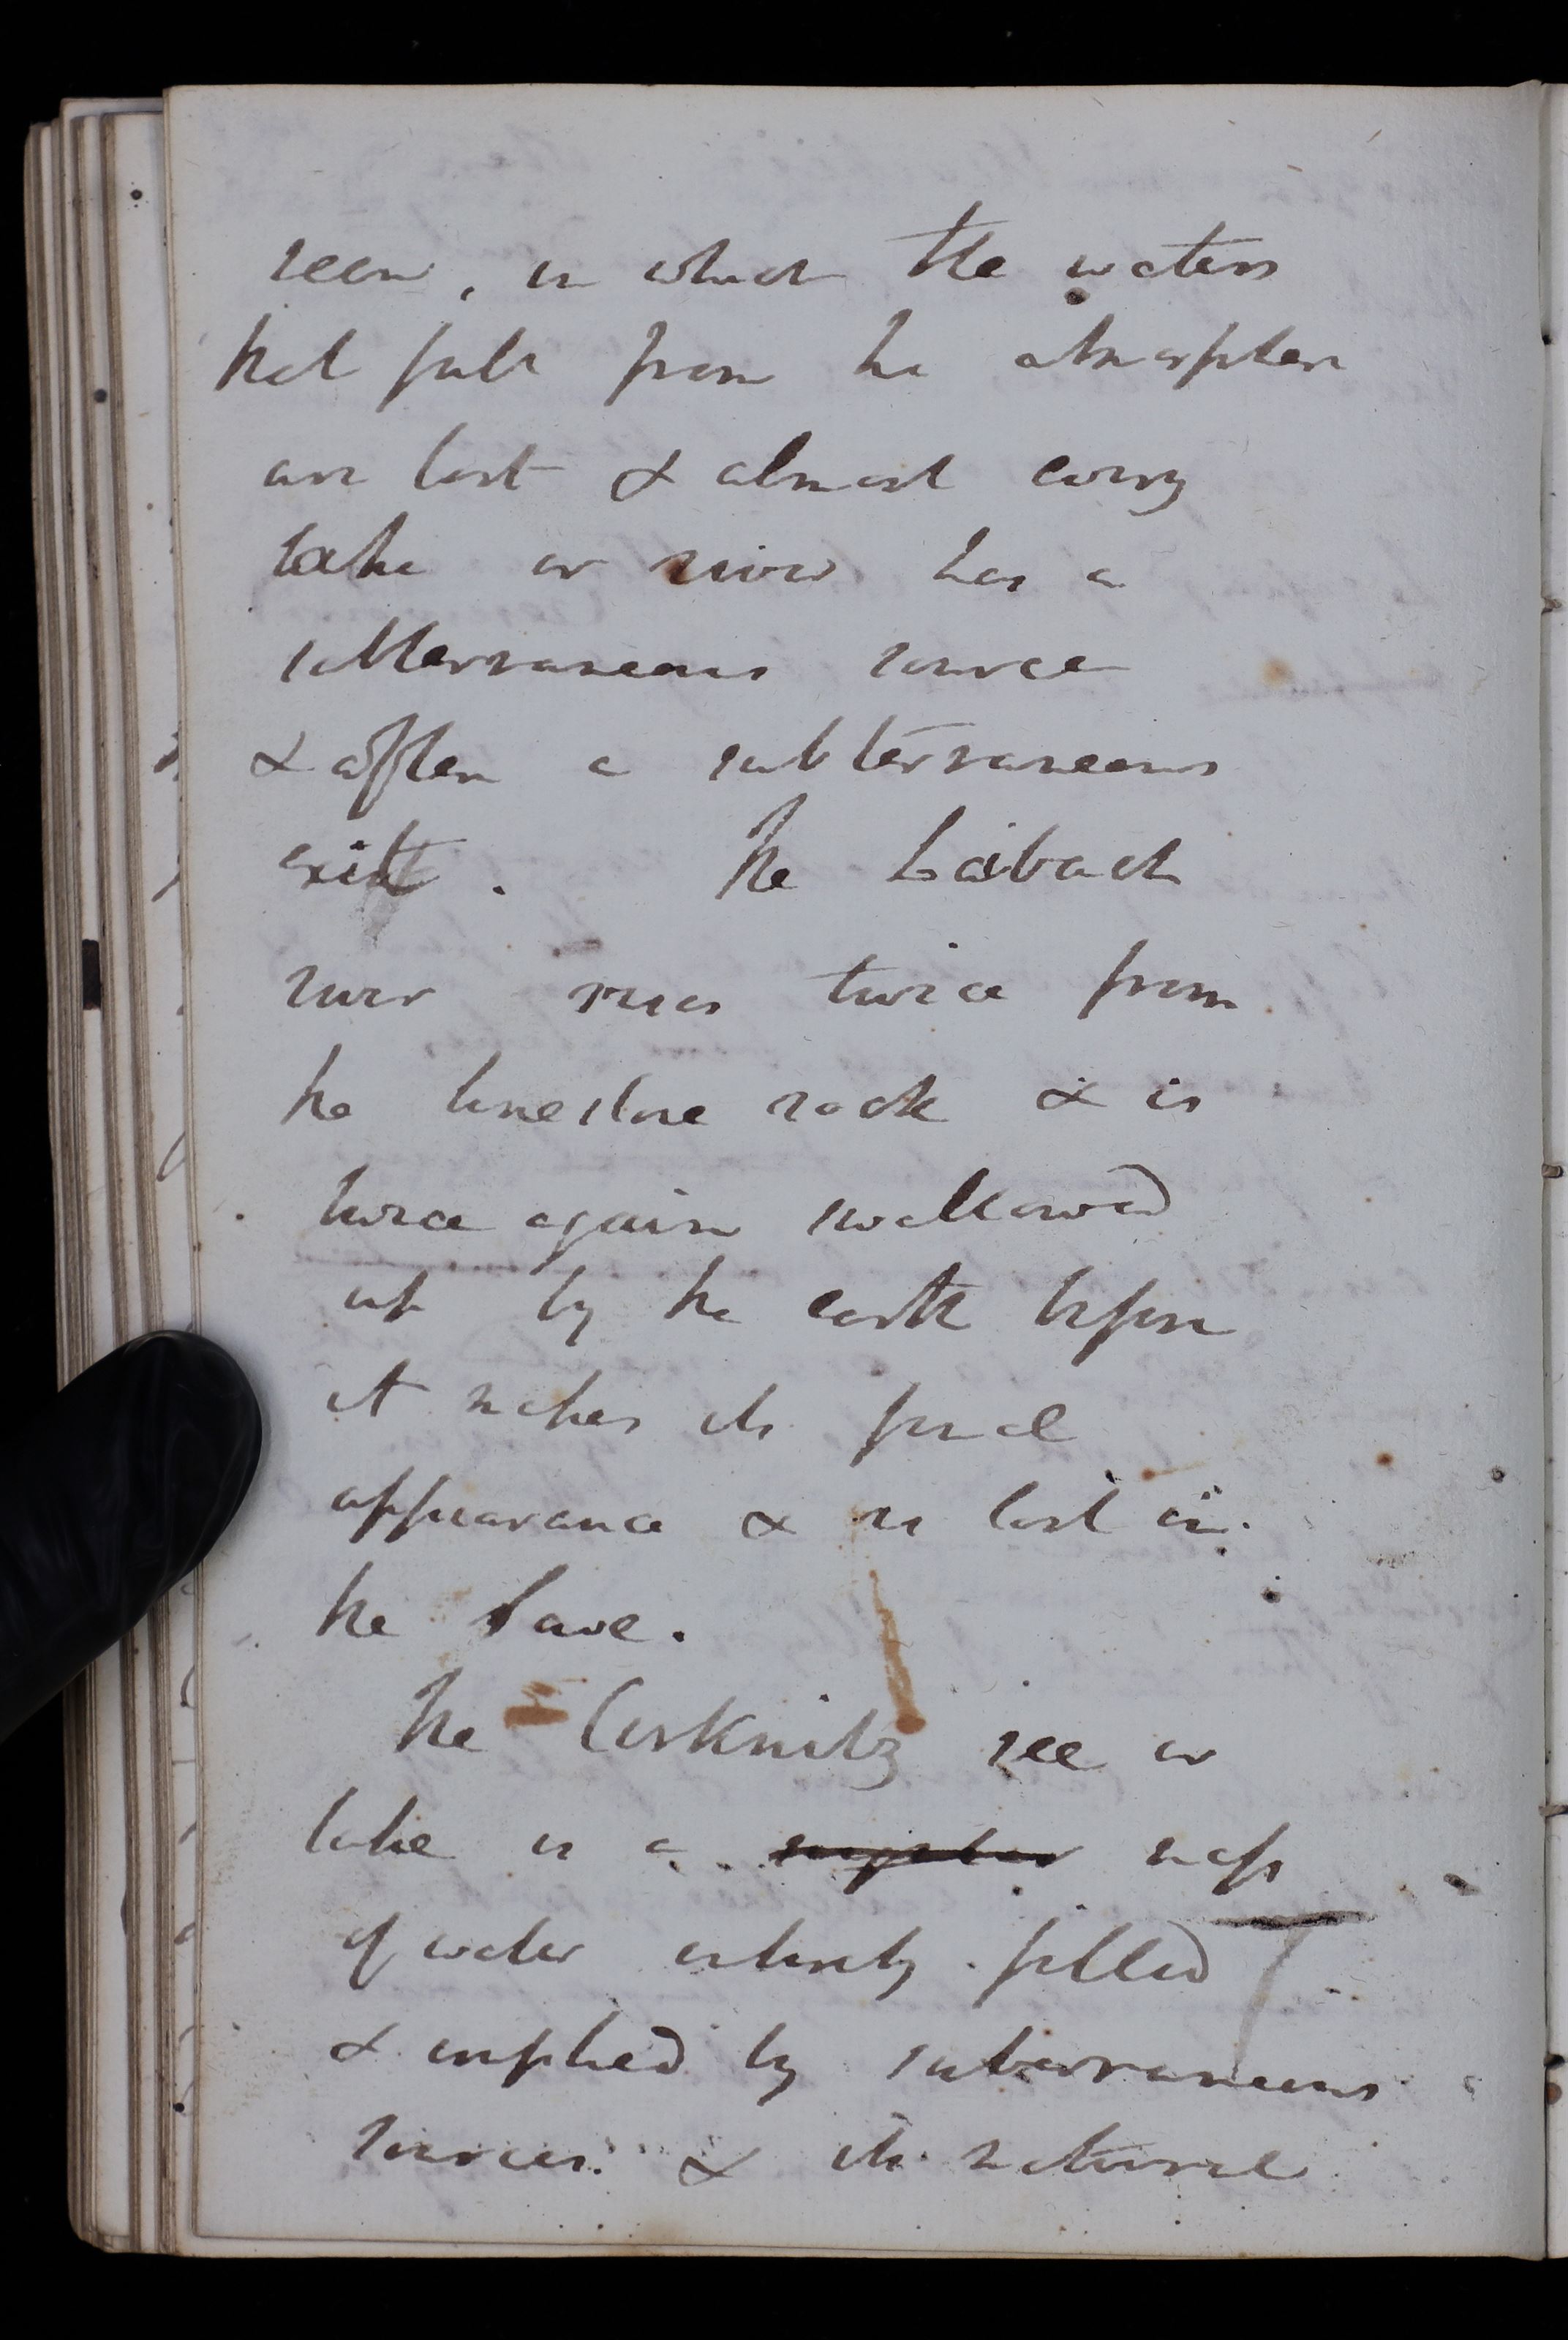 seen, in which the waters
that fall from the atmosphere
are lost & almost every
lake or river has a
subterraneous source
& often a subterraneous
exit. The Laibach
river rises twice from
the limestone rock & is
twice again swallowed
up by the earth before
it makes its final
appearance & is lost in
the Save.
The Cirknitz see or
lake is a singular mass
of water entirely filled
& supplied by subterraneous
sources & its natural